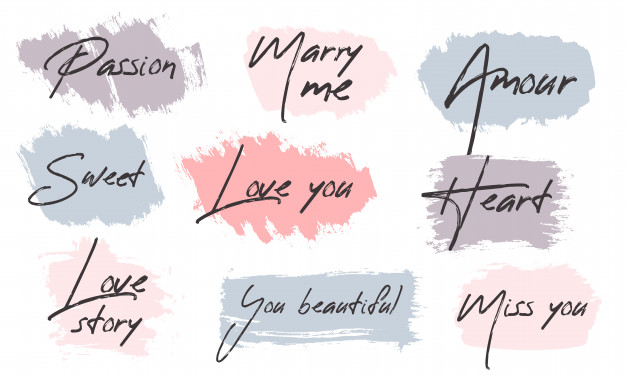 Passion
Marry
me
Amour
Sweet
Love you
Heart
Love
story
You beautiful
Miss you